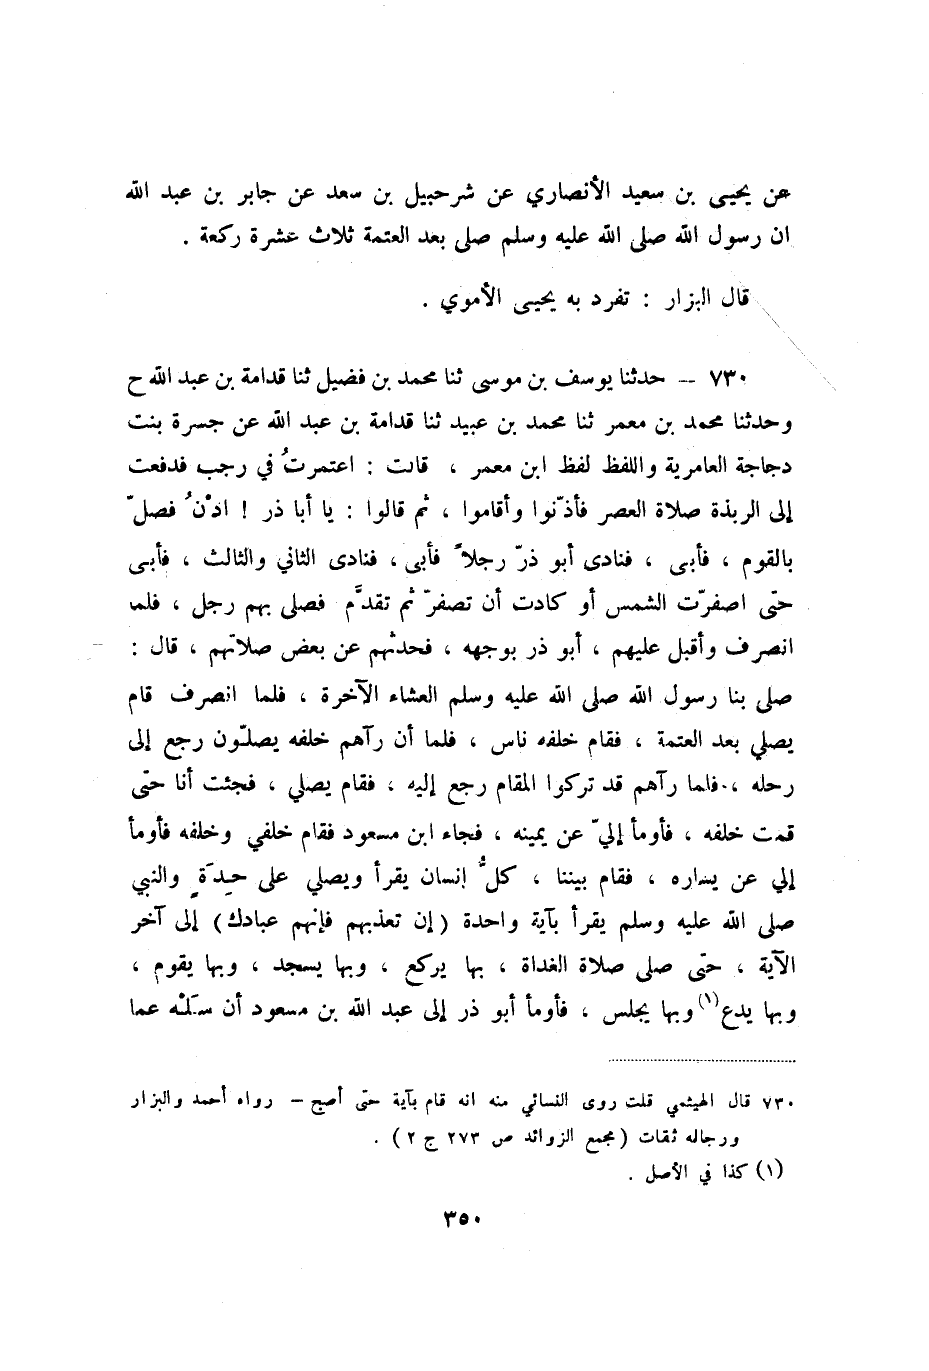 عن يحيى بن سعيد الأنصاري عن شرحبيل بن سعد عن جابر بن عبد الله
ان رسول الله صلى الله عليه وسلم صلى بعد العتمة ثلاث عشرة ركعة .
قال البزار : تفرد به يحيى الأموي .
٧٣٠ – حدثنا يوسف بن موسى ثنا محمد بن فضيل ثنا قدامة بن عبد الله ح
وحدثنا محمد بن معمر ثنا محمد بن عبيد ثنا قدامة بن عبد الله عن جسرة بنت
دجاجة العامرية واللفظ لفظ ابن معمر ، قالت : اعتمرتُ في رجب فدفعت
إلى الربذة صلاة العصر فأذّنوا وأقاموا ، ثم قالوا : يا أبا ذر ! ادْنُ فصلّ
بالقوم ، فأبى ، فنادى أبو ذرّ رجلاً فأبى ، فنادى الثاني والثالث ، فأبى
حتّى اصفرّت الشمس أو كادت أن تصفرّ ثم تقدَّم فصلى بهم رجل ، فلما
انصرف وأقبل عليهم ، أبو ذر بوجهه ، فحدثهم عن بعض صلاتهم ، قال :
صلى بنا رسول الله صلى الله عليه وسلم العشاء الآخرة ، فلما انصرف قام
يصلي بعد العتمة ، فقام خلفه ناس ، فلما أن رآهم خلفه يصلّون رجع إلى
رحله ، فلما رآهم قد تركوا المقام رجع إليه ، فقام يصلي ، فجئت أنا حتّى
قمت خلفه ، فأومأ إليّ عن يمينه ، فجاء ابن مسعود فقام خلفي وخلفه فأومأ
إلي عن يساره ، فقام بيننا ، كلُّ إنسان يقرأ ويصلي على حِدَةٍ والنبي
صلى الله عليه وسلم يقرأ بآية واحدة (إن تعذبهم فإنهم عبادك) إلى آخر
الآية ، حتّى صلى صلاة الغداة ، بها يركع ، وبها يسجد ، وبها يقوم ،
وبها يدع(١) وبها يجلس ، فأومأ أبو ذر إلى عبد الله بن مسعود أن سَلْه عما
٧٣٠ قال الهيثمي قلت روى النسائي منه انه قام بآية حتى أصبح – رواه أحمد والبزار
ورجاله ثقات (مجمع الزوائد ص ٢٧٣ ج ٢) .
(١) كذا في الأصل .
٣٥٠